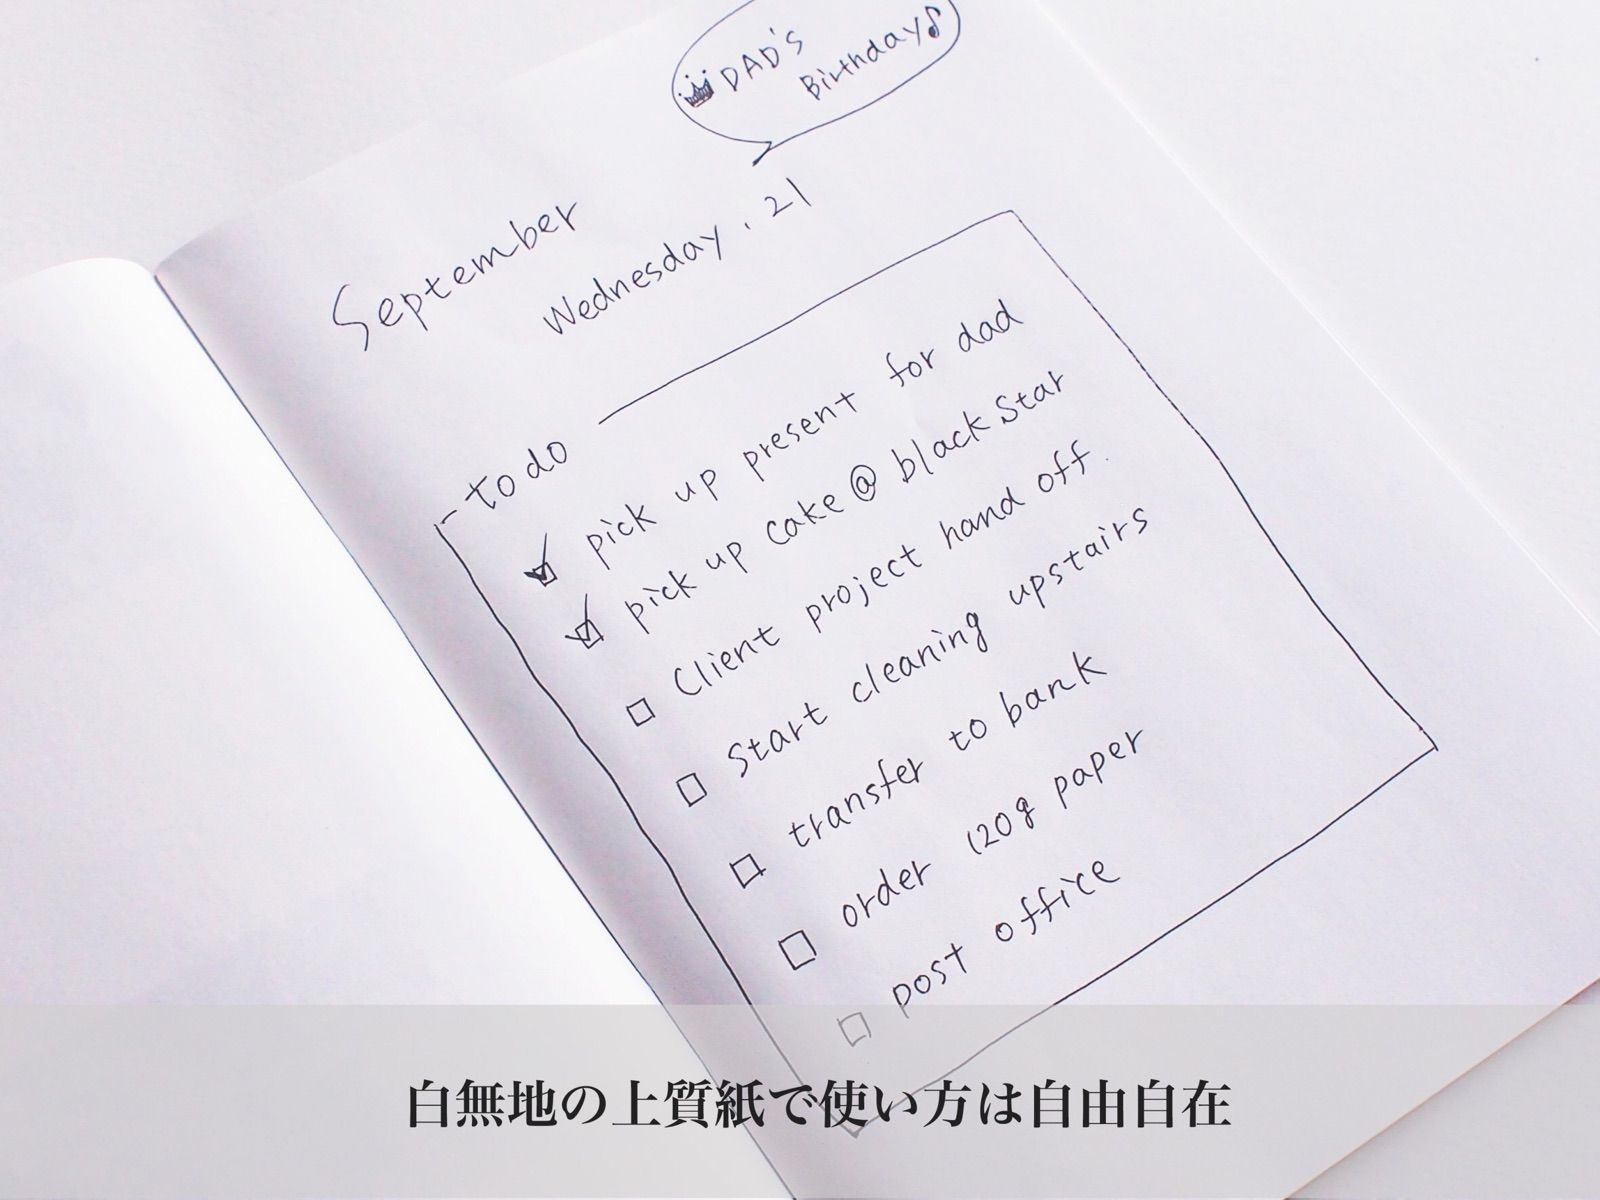 DAD's
Birthday♪
September
Wednesday . 21
to do
pick up present for dad
pick up cake @ black Star
Client project hand off
Start cleaning upstairs
transfer to bank
order 120g paper
post office
白無地の上質紙で使い方は自由自在